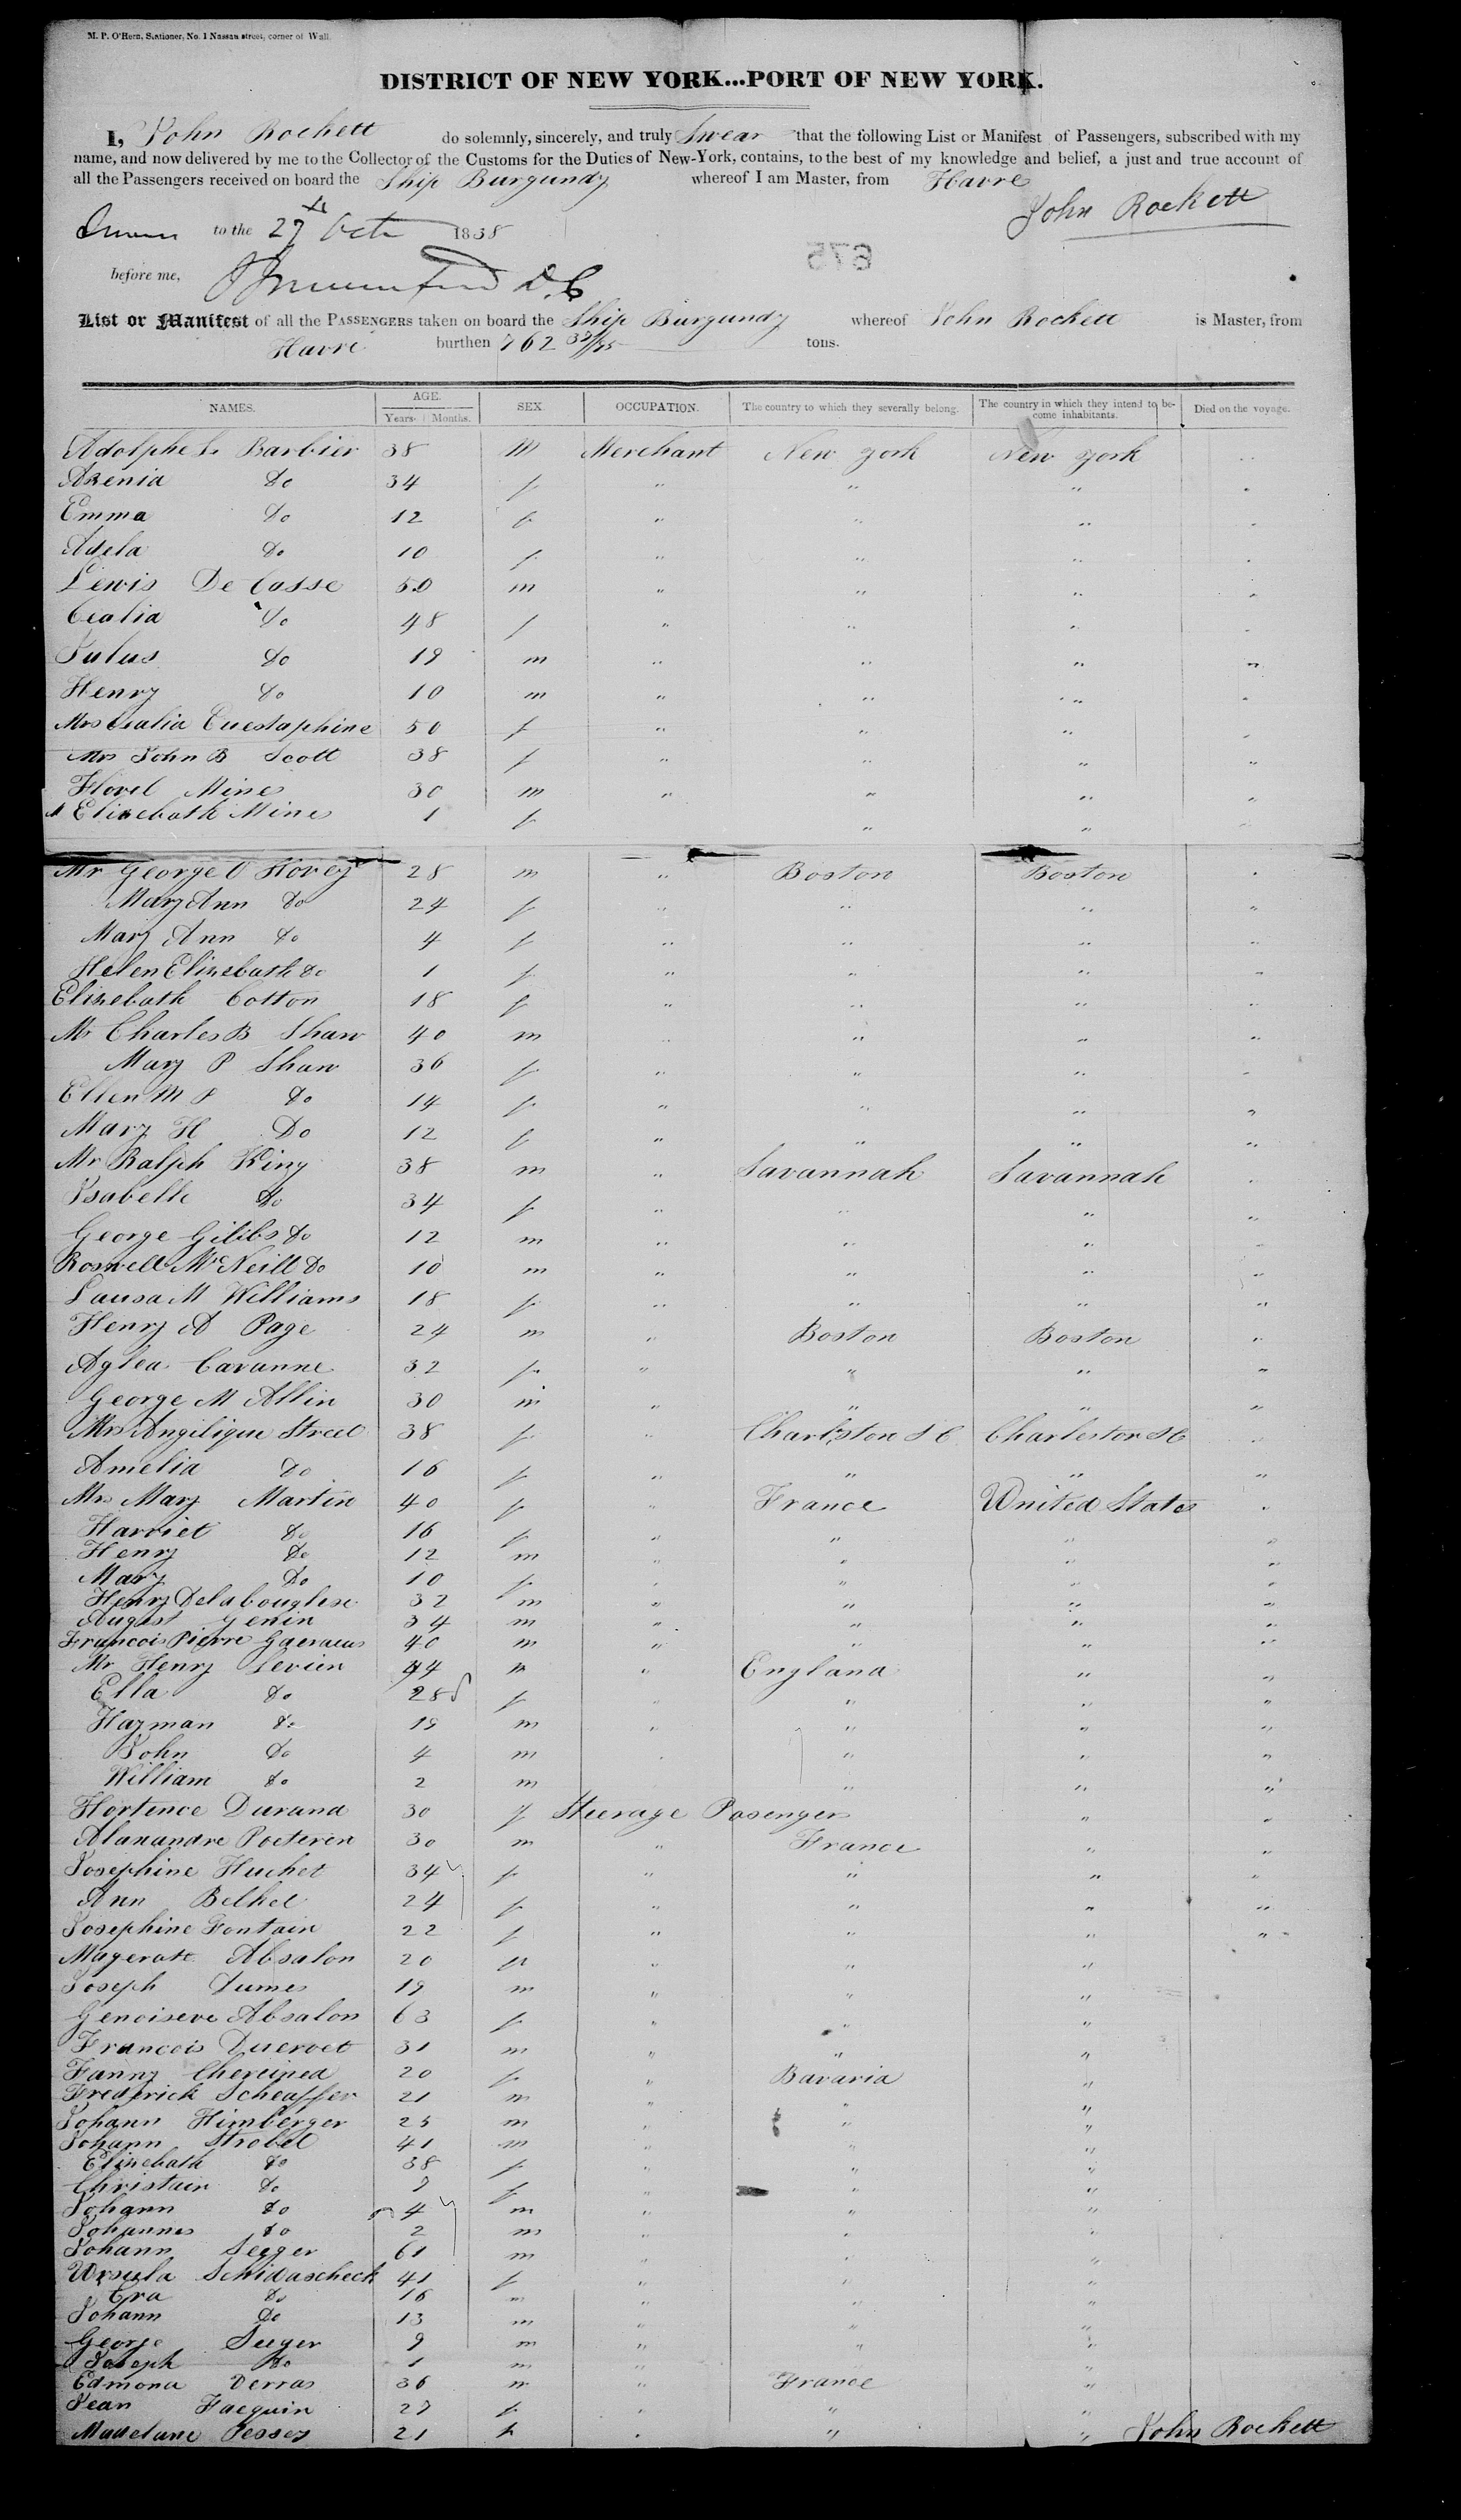 M. P. O'Hern, Stationer, No. 1 Nassau street, corner of Wall.
DISTRICT OF NEW YORK...PORT OF NEW YORK.
I, John Rockett do solemnly, sincerely, and truly Swear that the following List or Manifest of Passengers, subscribed with my
name, and now delivered by me to the Collector of the Customs for the Duties of New-York, contains, to the best of my knowledge and belief, a just and true account of
all the Passengers received on board the Ship Burgundy whereof I am Master, from Havre
John Rockett
Sworn to the 27 Octr 1838
675
before me, D.C
List or Manifest of all the PASSENGERS taken on board the Ship Burgundy whereof John Rockett is Master, from
Havre burthen 762 tons.
NAMES. AGE. Years. Months. SEX. OCCUPATION. The country to which they severally belong. The country in which they intend to become inhabitants. Died on the voyage.
Adolphe L Barbier 38 m Merchant New York New York
Azenia Do 34 f " " " "
Emma Do 12 f " " " "
Adela Do 10 f " " " "
Lewis De Casse 50 m " " " "
Cealia Do 48 f " " " "
Julus Do 19 m " " " "
Henry Do 10 m " " " "
Mrs Cealia Cuestaphine 50 f " " " "
Mrs John B Scott 38 f " " " "
Flovel Mines 30 m " " " "
Elizebath Mines 1 f " "
Mr George O Hovey 28 m " Boston Boston
Mary Ann Do 24 f " " " "
Mary Ann Do 4 f " " " "
Helen Elizebath Do 1 f " " " "
Elizebath Cotton 18 f " " " "
Mr Charles B Shaw 40 m " " " "
Mary P Shaw 36 f " " " "
Ellen M P Do 14 f " " " "
Mary H Do 12 f " " " "
Mr Ralph King 38 m " Savannah Savannah
Isabelle Do 34 f " " " "
George Gibbs Do 12 m " " " "
Roswell McNeill Do 10 m " " " "
Lausa M Williams 18 f " " " "
Henry A Page 24 m " Boston Boston "
Aglea Cavanne 32 f " " " "
George M Allin 30 m " " " "
Mrs Angilique Street 38 f " Charleston S C Charleston S C
Amelia Do 16 f " " " "
Mrs Mary Martin 40 f " France United States
Harriet Do 16 f " " " "
Henry Do 12 m " " " "
Mary Do 10 f " " " "
Henry Delabouglise 32 m " " " "
August Yenin 34 m " " " "
Francois Pierre 40 m " " " "
Mr Henry Levien 44 m " England " "
Ella Do 28 f " " " "
Hayman Do 19 m " " " "
John Do 4 m " " " "
William Do 2 m " " "
Hortence Durand 30 f Steerage Pasengers " "
Alanandre Poeteren 30 m " France " "
Josephine Huchet 34 f " " " "
Ann Bethel 24 f " " " "
Josephine Fontain 22 f " " " "
Magerate Absalon 20 f " " "
Joseph Dumes 19 m " " "
Genoiseve Absalon 63 f " " "
Francois Duervet 31 m " " "
Fanny 20 f " Bavaria "
Frederick Scheaffer 21 m " " "
Johann Himberger 25 m " " "
Johann Strobel 41 m " " "
Elizebath Do 38 f " " "
Christain Do 7 f " " "
Johann Do 4 m " " "
Johannes Do 2 m " " "
Johann Seeger 61 m " " "
Ursula Schidascheck 41 f " " "
Eva Do 16 " " "
Johann Do 13 m " " "
George Seeger 9 m " " "
Joseph Do 1 m " "
Edmond Derras 36 m " France "
Jean Facquin 27 f " " "
Madelane Pessey 21 f " " "
John Rockett